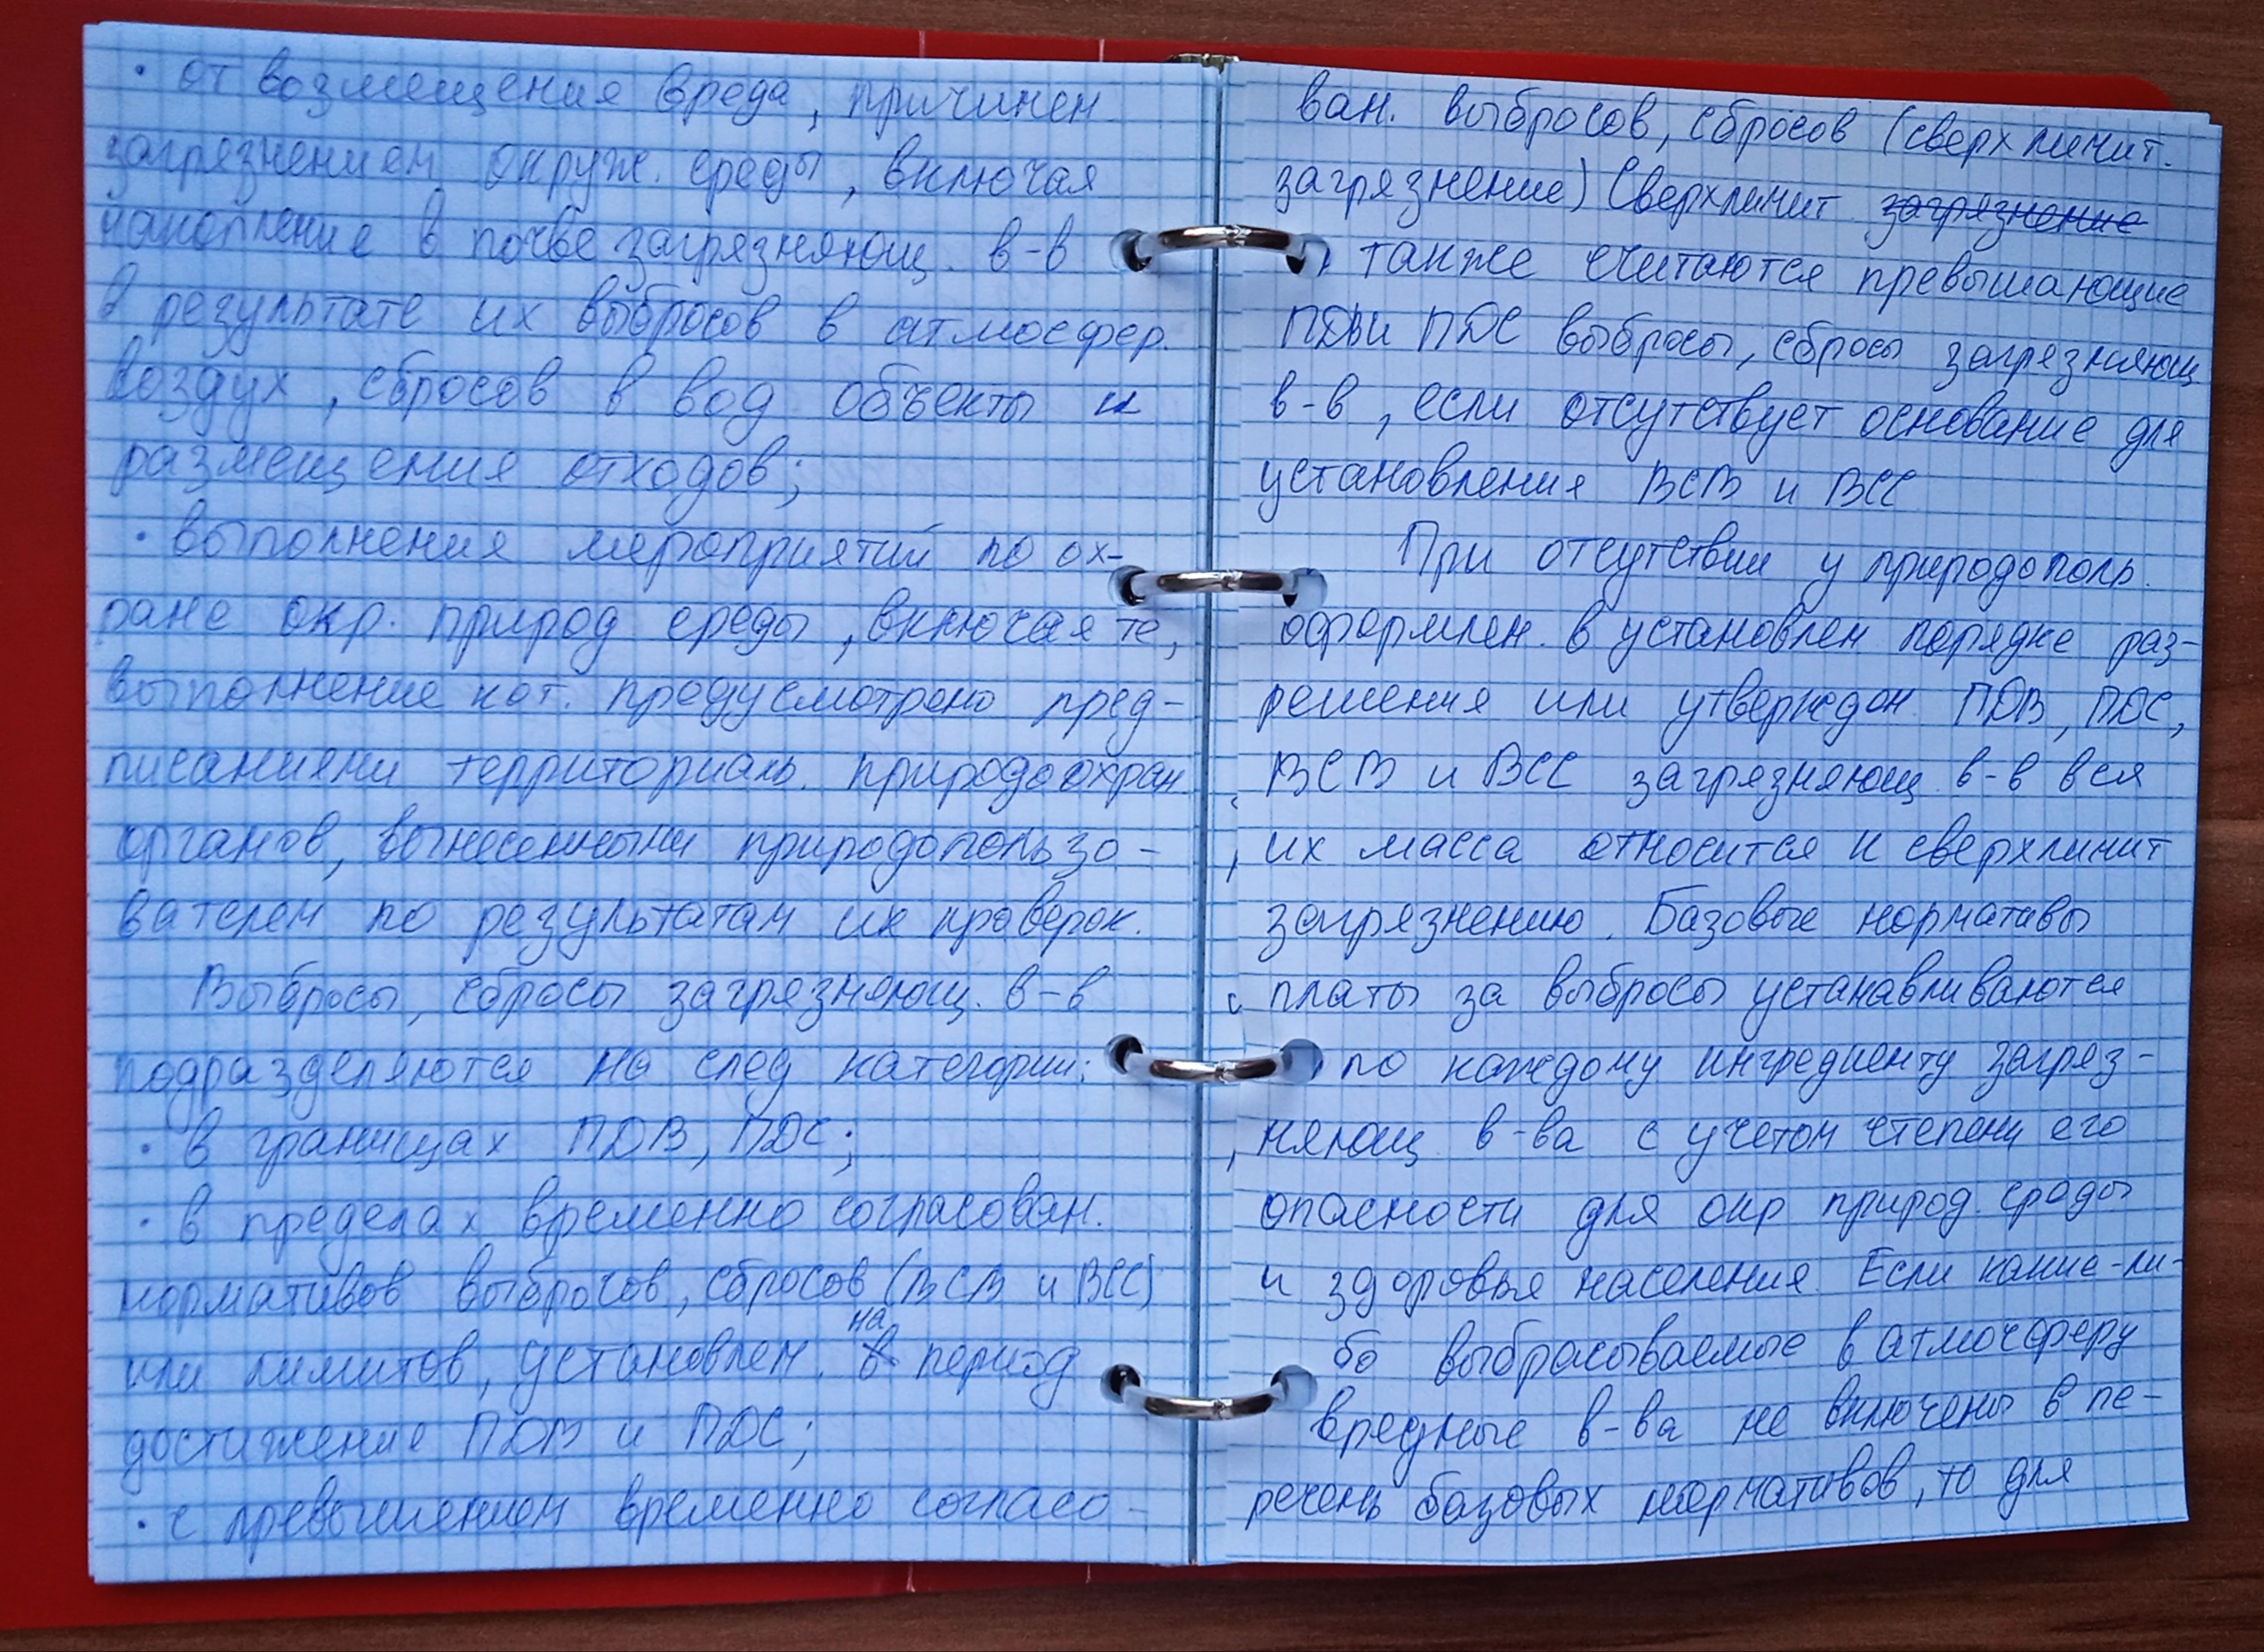 · от возмещения вреда, причинен
загрязнением окруж. среды, включая
накопление в почве загрязняющ. в-в
в результате их выбросов в атмосфер.
воздух, сбросов в вод объекты и
размещения отходов;
· выполнения мероприятий по ох-
ране окр. природ среды, включая те,
выполнение кот. предусмотрено пред-
писаниями территориаль. природоохран
органов, вынесенными природопользо-
вателем по результатам их проверок.
Выбросы, сбросы загрязняющ. в-в
подразделяются на след категории:
· в границах ПДВ, ПДС;
· в пределах временно согласован.
нормативов выбросов, сбросов (ВСВ и ВСС)
или лимитов, установлен. на период
достижение ПДВ и ПДС;
· с превышением временно согласо-
ван. выбросов, сбросов (сверхлимит.
загрязнение) Сверхлимит загрязнение
также считаются превышающие
ПДВи ПДС выбросы, сбросы загрязняющ
в-в, если отсутствует основание для
установления ВСВ и ВСС
При отсутствии у природополь.
оформлен. в установлен порядке раз-
решения или утвержден ПДВ, ПДС,
ВСВ и ВСС загрязняющ. в-в вся
их масса относится к сверхлимит
загрязнению. Базовые нормативы
платы за выбросы устанавливаются
по каждому ингредиенту загряз-
няющ в-ва с учетом степени его
опасности для окр природ. среды
и здоровья населения. Если какие-ли-
бо выбрасываемые в атмосферу
вредные в-ва не включены в пе-
речень базовых нормативов, то для